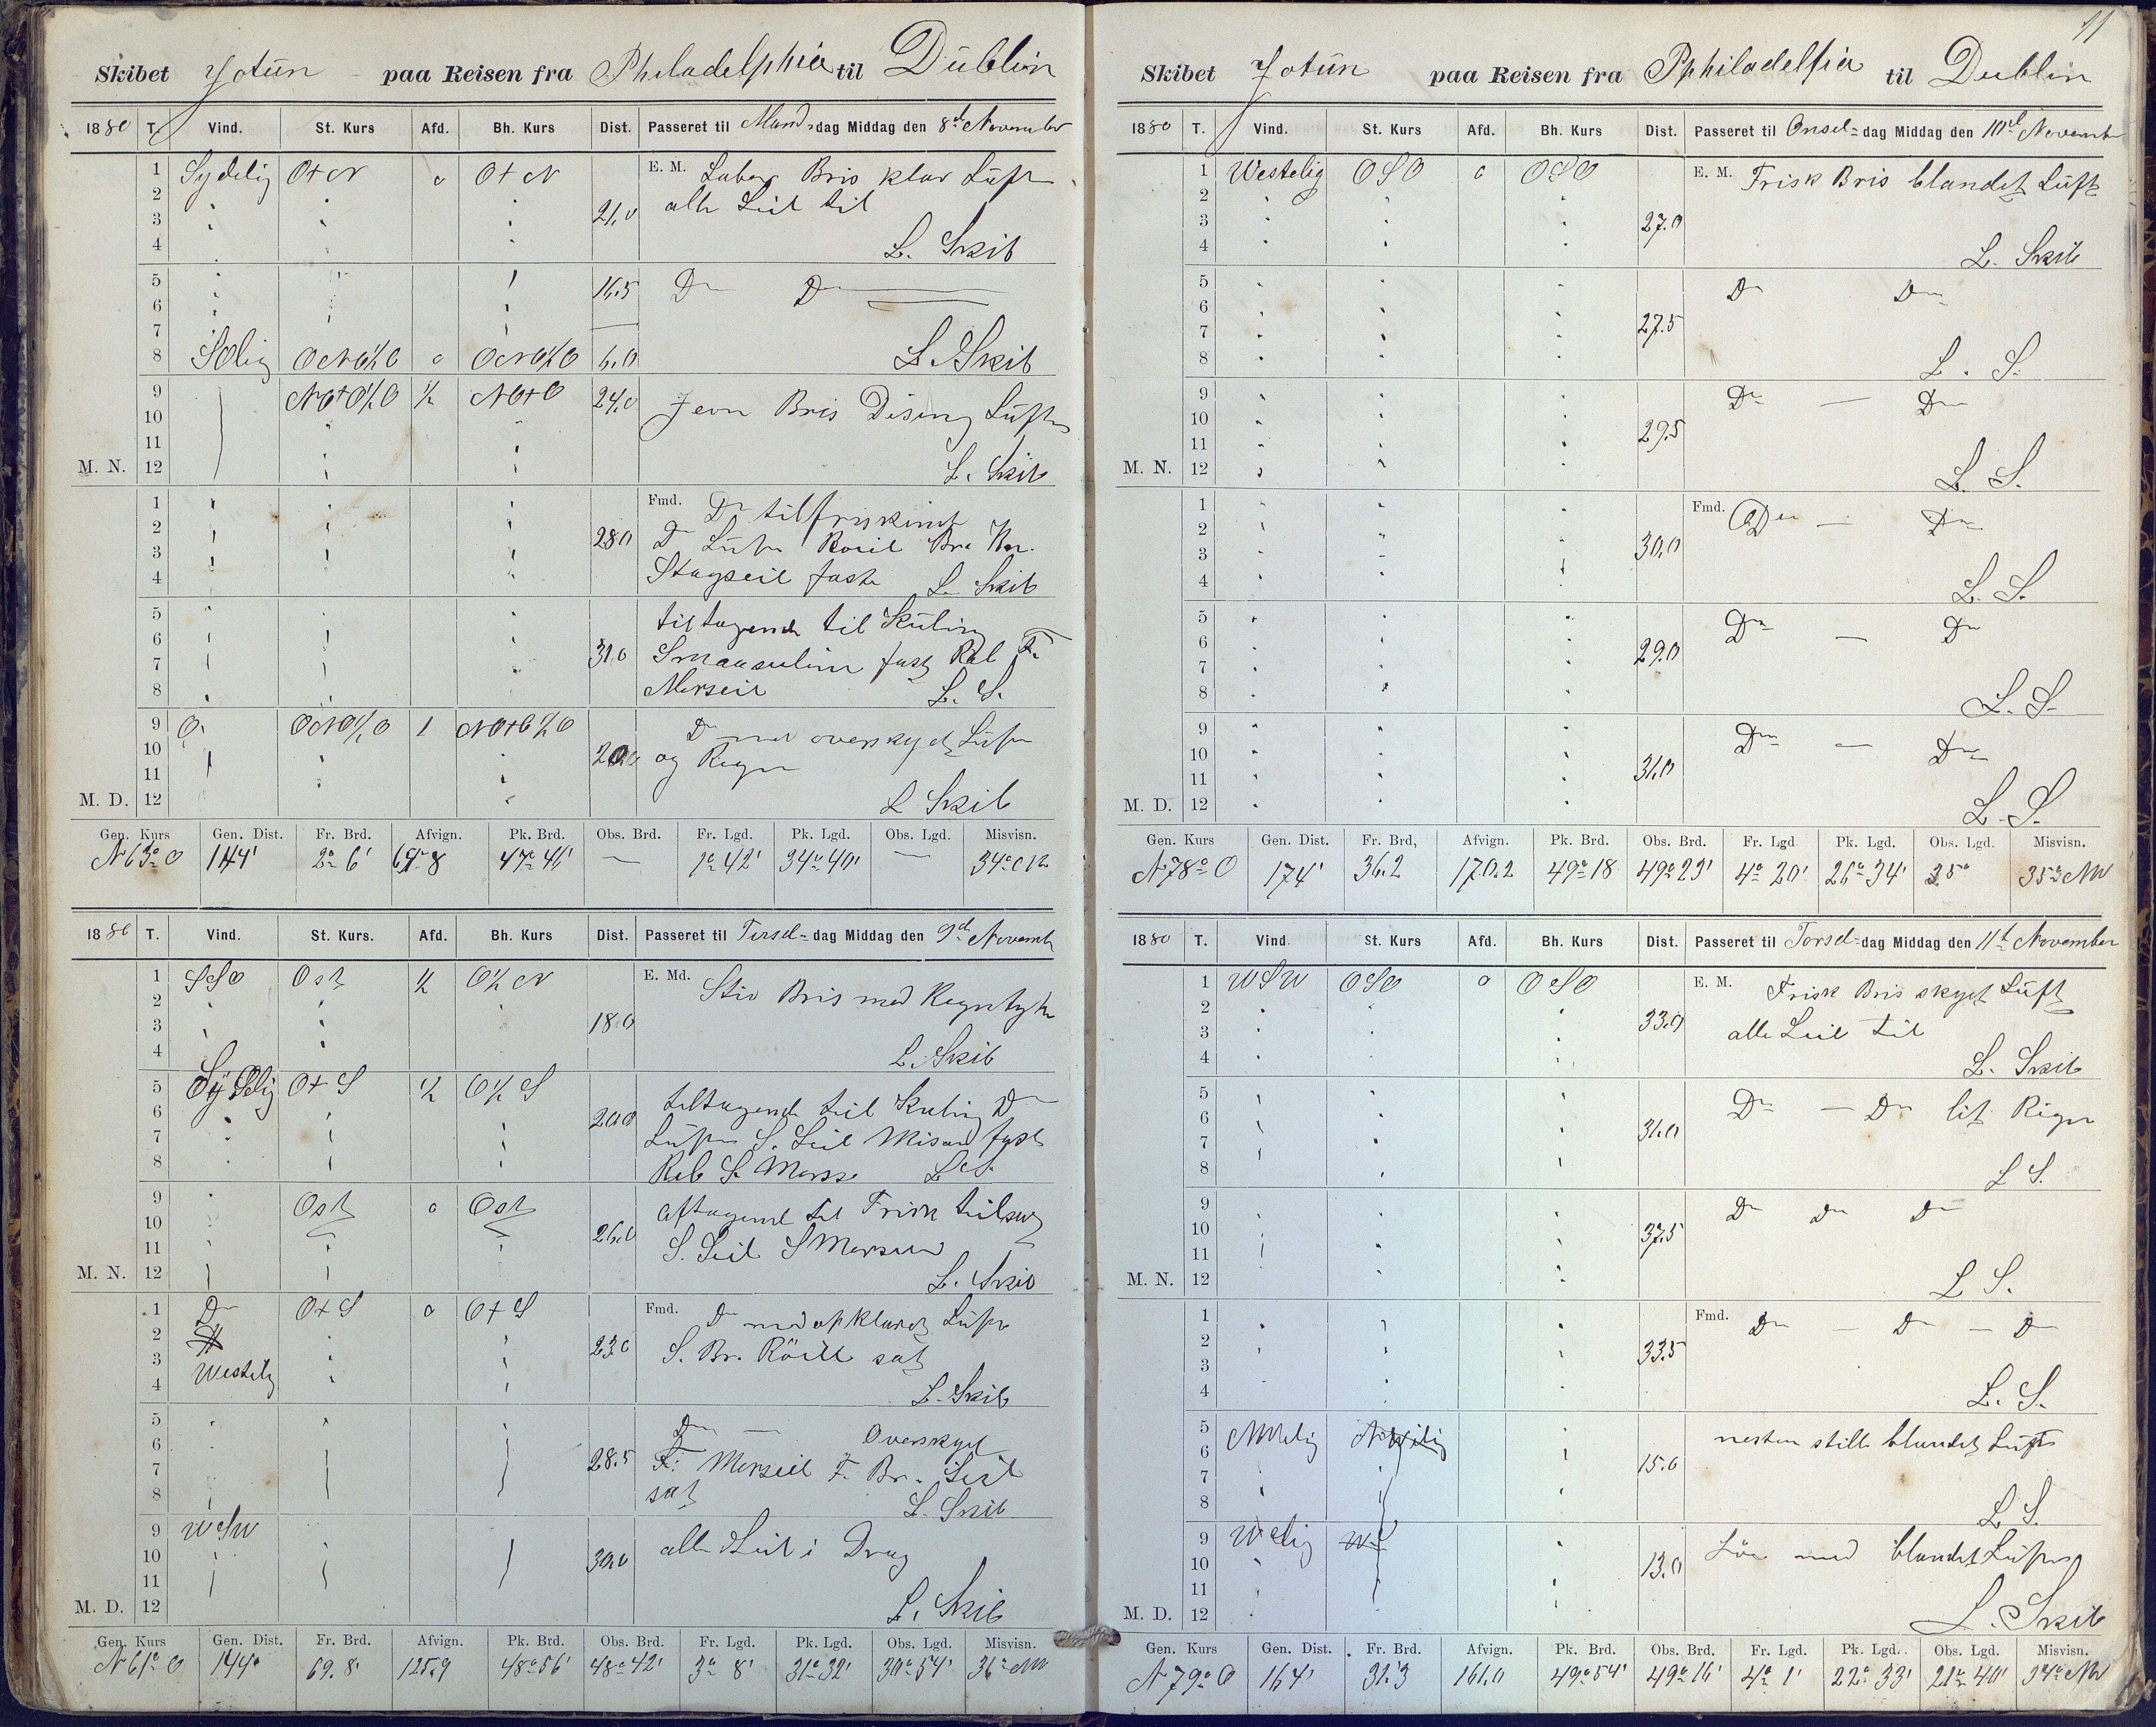 11
Skibet Jotün paa Reisen fra Philadelphia til Düblin
1880 T. Vind. St. Kurs Afd. Bh. Kurs Dist. Passeret til Mandag Middag den 8de November
1 Sydelig O+N 0 O+N E. M. Laber Bris klar Lüft
2 alle Seil til
3 21,0
4 L. Skib
5 16.5 Do Do
6
7
8 SOlig ONO½O 0 ONO½O 6.0 L. Skib
9 NO+O½O ½ NO+O 24,0 Jevn Bris Diseng Lüft
10
11
M. N. 12 L. Skib
1 Fmd. Do tilfriskende
2 28.0 Do Lüft
3 Stagseil faste L. Skib
4
5 tiltagende til Küling
6 31.0 Smaaseilene fast Reb F.
7 Merseil L. S.
8
9 O. ONO½O 1 NO+O½O Do med overskyet Lüft
10 20.0 og Regn
11
M. D. 12 L Skib
Gen. Kurs Gen. Dist. Fr. Brd. Afvign. Pk. Brd. Obs. Brd. Fr. Lgd. Pk. Lgd. Obs. Lgd. Misvisn.
N63°O 144' 2° 6' 64.8 47°46' — 1°42' 34°40' — 34°NW
1880 T. Vind. St. Kurs. Afd. Bh. Kurs Dist. Passeret til Tirsdag Middag den 9de November
1 SSO Ost ½ O½N E. Md. Stiv Bris med Regntykke
2
3 18.0
4 L. Skib
5 Sydelig O+S ½ O½S tiltagende til Kuling Do
6 20.0 Lüft S. Seil Misan fast
7 Reb S. Merse L S.
8
9 Ost 0 Ost aftagende til Frisk tilsat
10 26.0 S. Seil S Merseil
11
M. N. 12 L. Skib
1 Do O+S 0 O+S Fmd. Do med opklaret Lüft
2 23.0 S. Br. Röill sat
3 Westelig
4 L. Skib
5 Do — Overskyet
6 28.5 F. Merseil F. Br. Seil
7 sat
8 L. Skib
9 WSW alle Seil i Drag
10 30.0
11
M. D. 12 L. Skib
Gen. Kurs Gen. Dist. Fr. Brd. Afvign. Pk. Brd. Obs. Brd. Fr. Lgd. Pk. Lgd. Obs. Lgd. Misvisn.
N61°O 144' 69.8' 125.9 48°56' 48°42' 3° 8' 31°32' 30°54' 36°NW
Skibet Jotün paa Reisen fra Pphiladelfia til Dublin
1880 T. Vind. St. Kurs Afd. Bh. Kurs Dist. Passeret til Onsdag Middag den 10de November
1 Westelig OSO 0 OSO E. M. Frisk Bris blandet Lüft
2
3 27.0
4 L. Skib
5 Do Do
6
7 27.5
8 L. S.
9 Do — Do
10
11 29.5
M. N. 12 L. S.
1 Fmd. Do — Do
2
3 30.0
4 L. S.
5 Do — Do
6
7 29.0
8 L. S.
9 Do — Do
10
11 31.0
M. D. 12 L. S.
Gen. Kurs Gen. Dist. Fr. Brd, Afvign. Pk. Brd. Obs. Brd. Fr. Lgd Pk. Lgd. Obs. Lgd. Misvisn.
N78°O 174' 36.2 170.2 49°18 49°23' 4°20' 26°34' 35° 35°NW
1880 T. Vind. St. Kurs Afd. Bh. Kurs Dist. Passeret til Torsdag Middag den 11te November
1 WSW OSO 0 OSO E. M. Frisk Bris skyet Lüft
2 alle Seil til
3 33.0
4 L. Skib
5 Do — Do lit Regn
6
7 31.0
8 L S.
9 Do Do Do
10
11 37.5
M. N. 12 L S.
1 Fmd. Do — Do — Do
2
3 33.5
4 L. S.
5 NWelig nesten stille blandet Lüft
6
7 15.0
8 L S.
9 Welig med blandet Lüft
10 13.0
11
M. D. 12 L. Skib
Gen. Kurs Gen. Dist. Fr. Brd. Afvign. Pk. Brd. Obs. Brd. Fr. Lgd. Pk. Lgd. Obs. Lgd. Misvisn.
N79°O 164' 31.3 161.0 49°54' 49°16' 4° 1' 22°33' 21°40' 34°NW